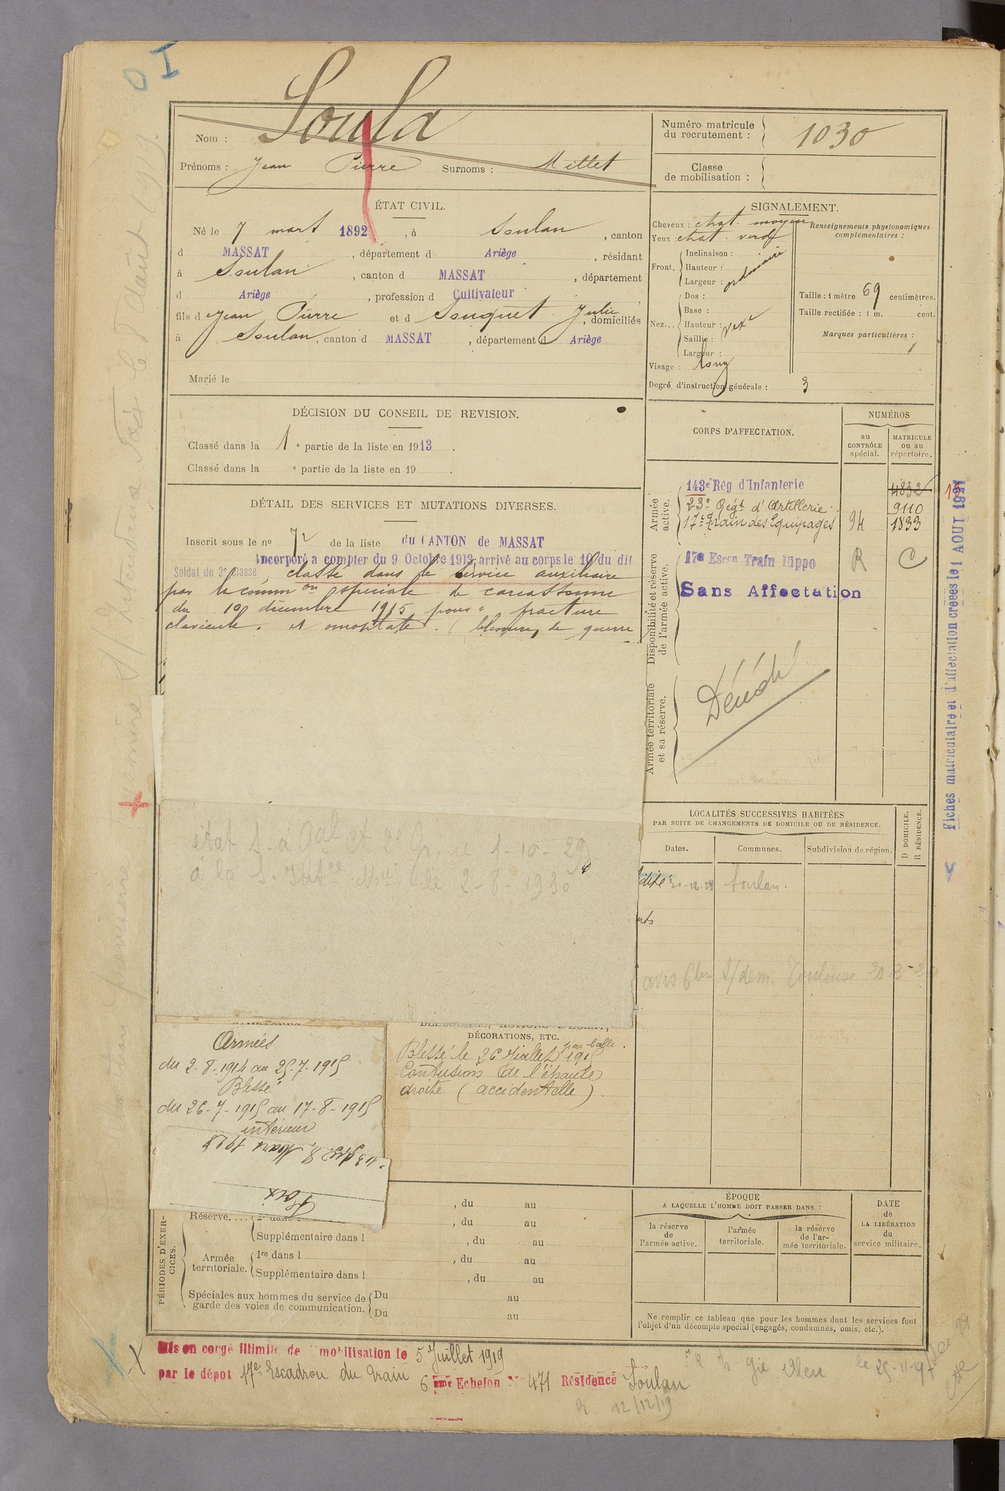 O I
Nom : Soula
Prénoms : Jean Pierre Surnoms : Millet
Numéro matricule du recrutement : 1030
Classe de mobilisation :
ÉTAT CIVIL.
Né le 7 mars 1892, à Soulan, canton
d MASSAT, département d Ariège, résidant
à Soulan, canton d MASSAT, département
d Ariège, profession d Cultivateur
fils d Jean Pierre et d Souquet Julie, domiciliés
à Soulan, canton d MASSAT, département d Ariège
Marié le
SIGNALEMENT.
Cheveux : chat. moyen
Yeux chat. verd
Front. Inclinaison :
Hauteur :
Largeur : ordinaire
Nez... Dos :
Base :
Hauteur :
Saillie :
Largeur :
Visage : long
Renseignements physionomiques complémentaires :
Taille : 1 mètre 69 centimètres.
Taille rectifiée : 1 m. cent.
Marques particulières :
Degré d'instruction générale : 3
DÉCISION DU CONSEIL DE REVISION.
Classé dans la 1e partie de la liste en 1913.
Classé dans la e partie de la liste en 19 .
DÉTAIL DES SERVICES ET MUTATIONS DIVERSES.
Inscrit sous le no 72 de la liste du CANTON de MASSAT
Incorporé a compter du 9 Octobre 1913 arrivé au corps le 10 du dit
Soldat de 2e classe, classé dans le service auxiliaire
par la comm on spéciale de Carcassonne
du 10 décembre 1915 pour " fracture
clavicule et omoplate. (blessure de guerre
CORPS D'AFFECTATION.
NUMÉROS
au CONTRÔLE spécial.
MATRICULE ou au répertoire.
Armée active.
143e Rég d'Infanterie 4832
23e Régt d'Artillerie 9110
17e Train des Equipages 94 1833
Disponibilité et réserve de l'armée active.
17e Escon Train Hippo R C
Sans Affectation
Armée territoriale et sa réserve.
Décédé
Fiches matriculaire et d'affectation créées le 1 AOUT 1921
LOCALITÉS SUCCESSIVES HABITÉES
PAR SUITE DE CHANGEMENTS DE DOMICILE OU DE RÉSIDENCE.
Dates. Communes. Subdivision de région. D DOMICILE. R RÉSIDENCE.
Soulan.
avis Toulouse
1-10-29
2-8-1930
DÉCORATIONS, ETC.
Blessé le 26 juillet 1915 par balle.
Contusion de l'épaule
droite (accidentelle)
Armées
du 2-8-1914 au 25-7-1915
Blessé
du 26-7-1915 au 17-8-1915
intérieur
Foix
PÉRIODES D'EXERCICES.
Réserve.... , du au
, du au
Supplémentaire dans l , du au
Armée territoriale. 1re dans l , du au
Supplémentaire dans l , du au
Spéciales aux hommes du service de garde des voies de communication. Du au
Du au
ÉPOQUE
A LAQUELLE L'HOMME DOIT PASSER DANS :
la réserve de l'armée active.
l'armée territoriale.
la réserve de l'armée territoriale.
DATE de LA LIBÉRATION du service militaire.
Ne remplir ce tableau que pour les hommes dont les services font
l'objet d'un décompte spécial (engagés, condamnés, omis, etc.).
Mis en congé illimité de mobilisation le 5 Juillet 1919
par le dépot 17e Escadron du Train 6 eme Echelon No 471 Résidence Soulan
R 12/12/19